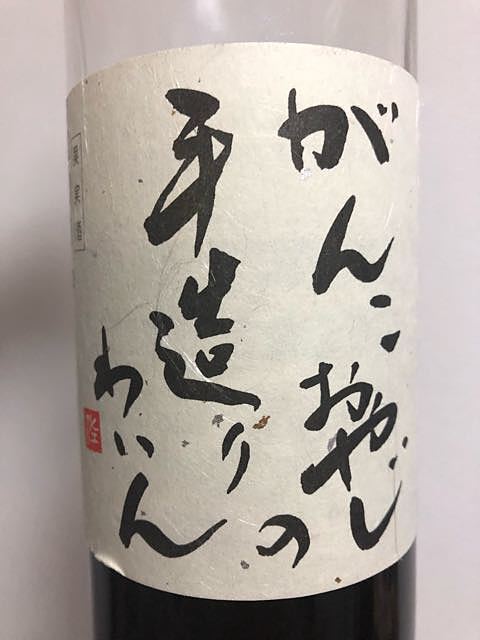 がんこおやじの
手造り
わいん
果実酒